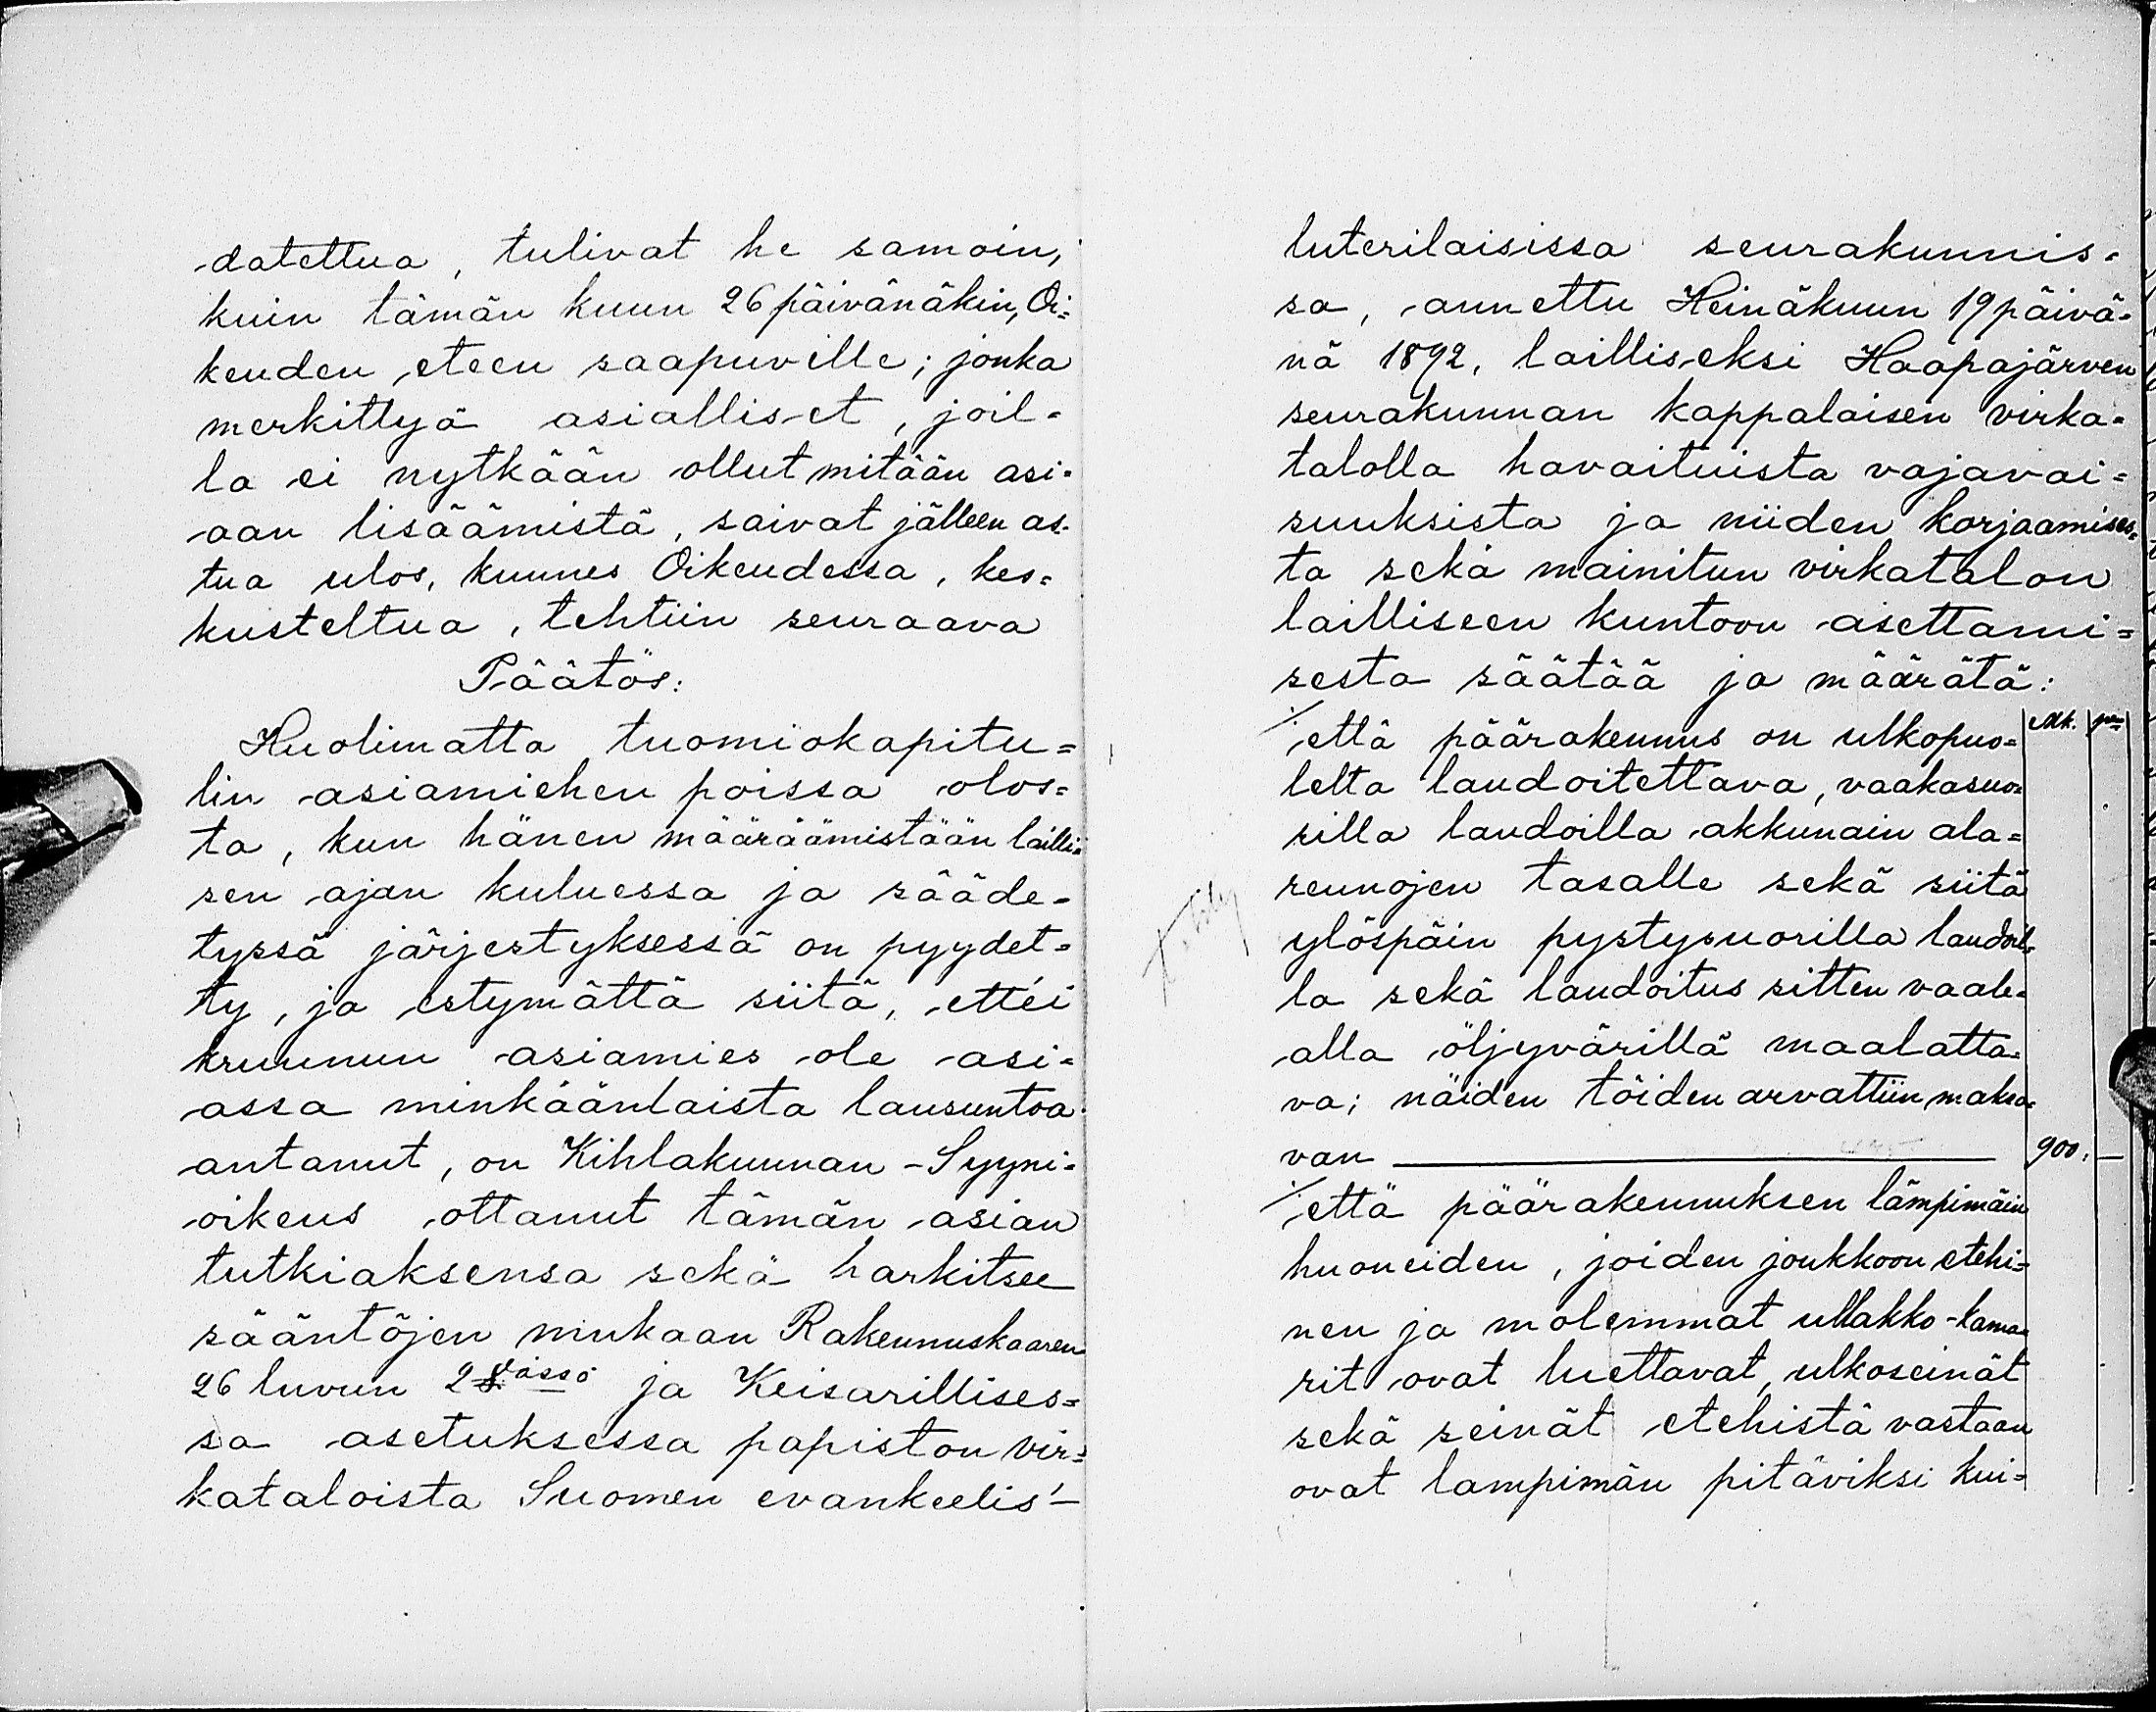 datettua, tulivat he samoin,
kuin tämän kuun 26 päivänäkin, Oi=
keuden eteen saapuville; jonka
merkittyä asialliset, joil=
la ei nytkään ollut mitään asi=
aan lisäämistä, saivat jälleen as=
tua ulos, kunnes Oikeudessa, kes=
kusteltua, tehtiin seuraava
Päätös:
Huolimatta tuomiokapitu=
lin asiamiehen poissa olos=
ta, kun hänen määräämistään lailli=
sen ajan kuluessa ja sääde=
tyssä järjestyksessä on pyydet=
ty, ja estymättä siitä, ett'ei
kruunun asiamies ole asi=
assa minkäänlaista lausuntoa
antanut, on Kihlakunnan-Syyni=
oikeus ottanut tämän asian
tutkiaksensa sekä harkitsee
sääntöjen mukaan Rakennuskaaren
26 luvun 2 §ässä ja Keisarillises=
sa asetuksessa papiston vir=
kataloista Suomen evankeelis'-
luterilaisissa seurakunnis=
sa, annettu Heinäkuun 19 päivä=
nä 1892, lailliseksi Haapajärven
seurakunnan kappalaisen virka=
talolla havaituista vajavai=
suuksista ja niiden korjaamises=
ta sekä mainitun virkatalon
lailliseen kuntoon asettami=
sesta säätää ja määrätä:
⁒ että päärakennus on ulkopuo= Mk. pn
lelta laudoitettava, vaakasuo=
rilla laudoilla akkunain ala=
reunojen tasalle sekä siitä
ylöspäin pystysuorilla laudoil=
la sekä laudoitus sitten vaale=
alla öljyvärillä maalatta=
va; näiden töiden arvattiin maksa=
van 900. —
⁒ että päärakennuksen lämpimäin
huoneiden, joiden joukkoon etehi=
nen ja molemmat ullakko-kama=
rit ovat luettavat, ulkoseinät
sekä seinät etehistä vastaan
ovat lampimän pitäviksi kui=